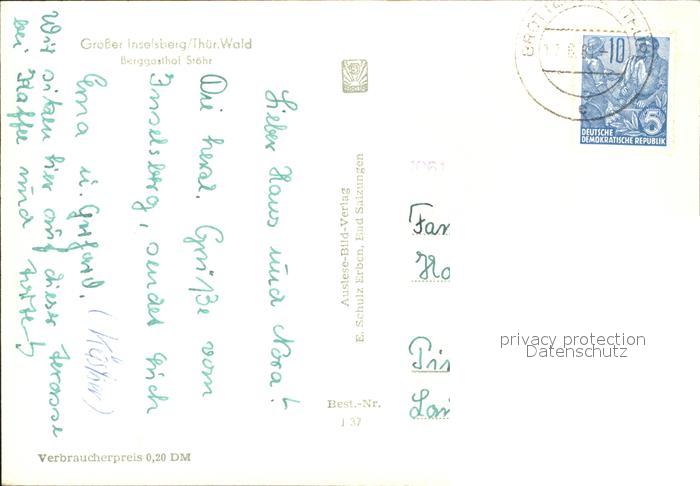 Großer Inselsberg/Thür. Wald
Berggasthof Stöhr
Lieber Hans und Nora!
Die herzl. Grüße vom
Inselsberg, sendet Euch
Erna u. Gerhard.
Wir sitzen hier auf dieser Terasse
bei Kaffee und
Auslese-Bild-Verlag
E. Schulz Erben, Bad Salzungen
Best.-Nr.
J 37
Verbraucherpreis 0,20 DM
10
5
DEUTSCHE
DEMOKRATISCHE REPUBLIK
Fam
Ho
privacy protection
Datenschutz